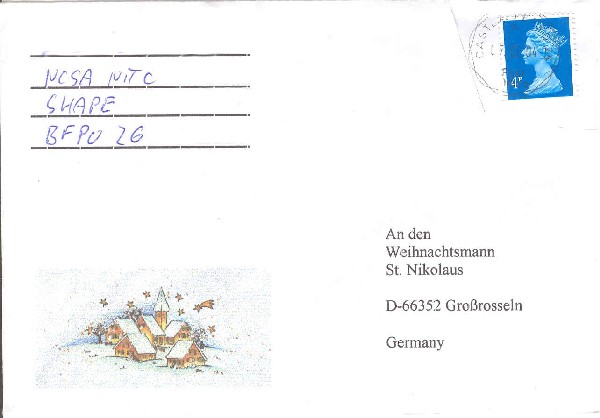 NCSA NITC
SHAPE
BFPO 26
4P
An den
Weihnachtsmann
St. Nikolaus
D-66352 Großrosseln
Germany